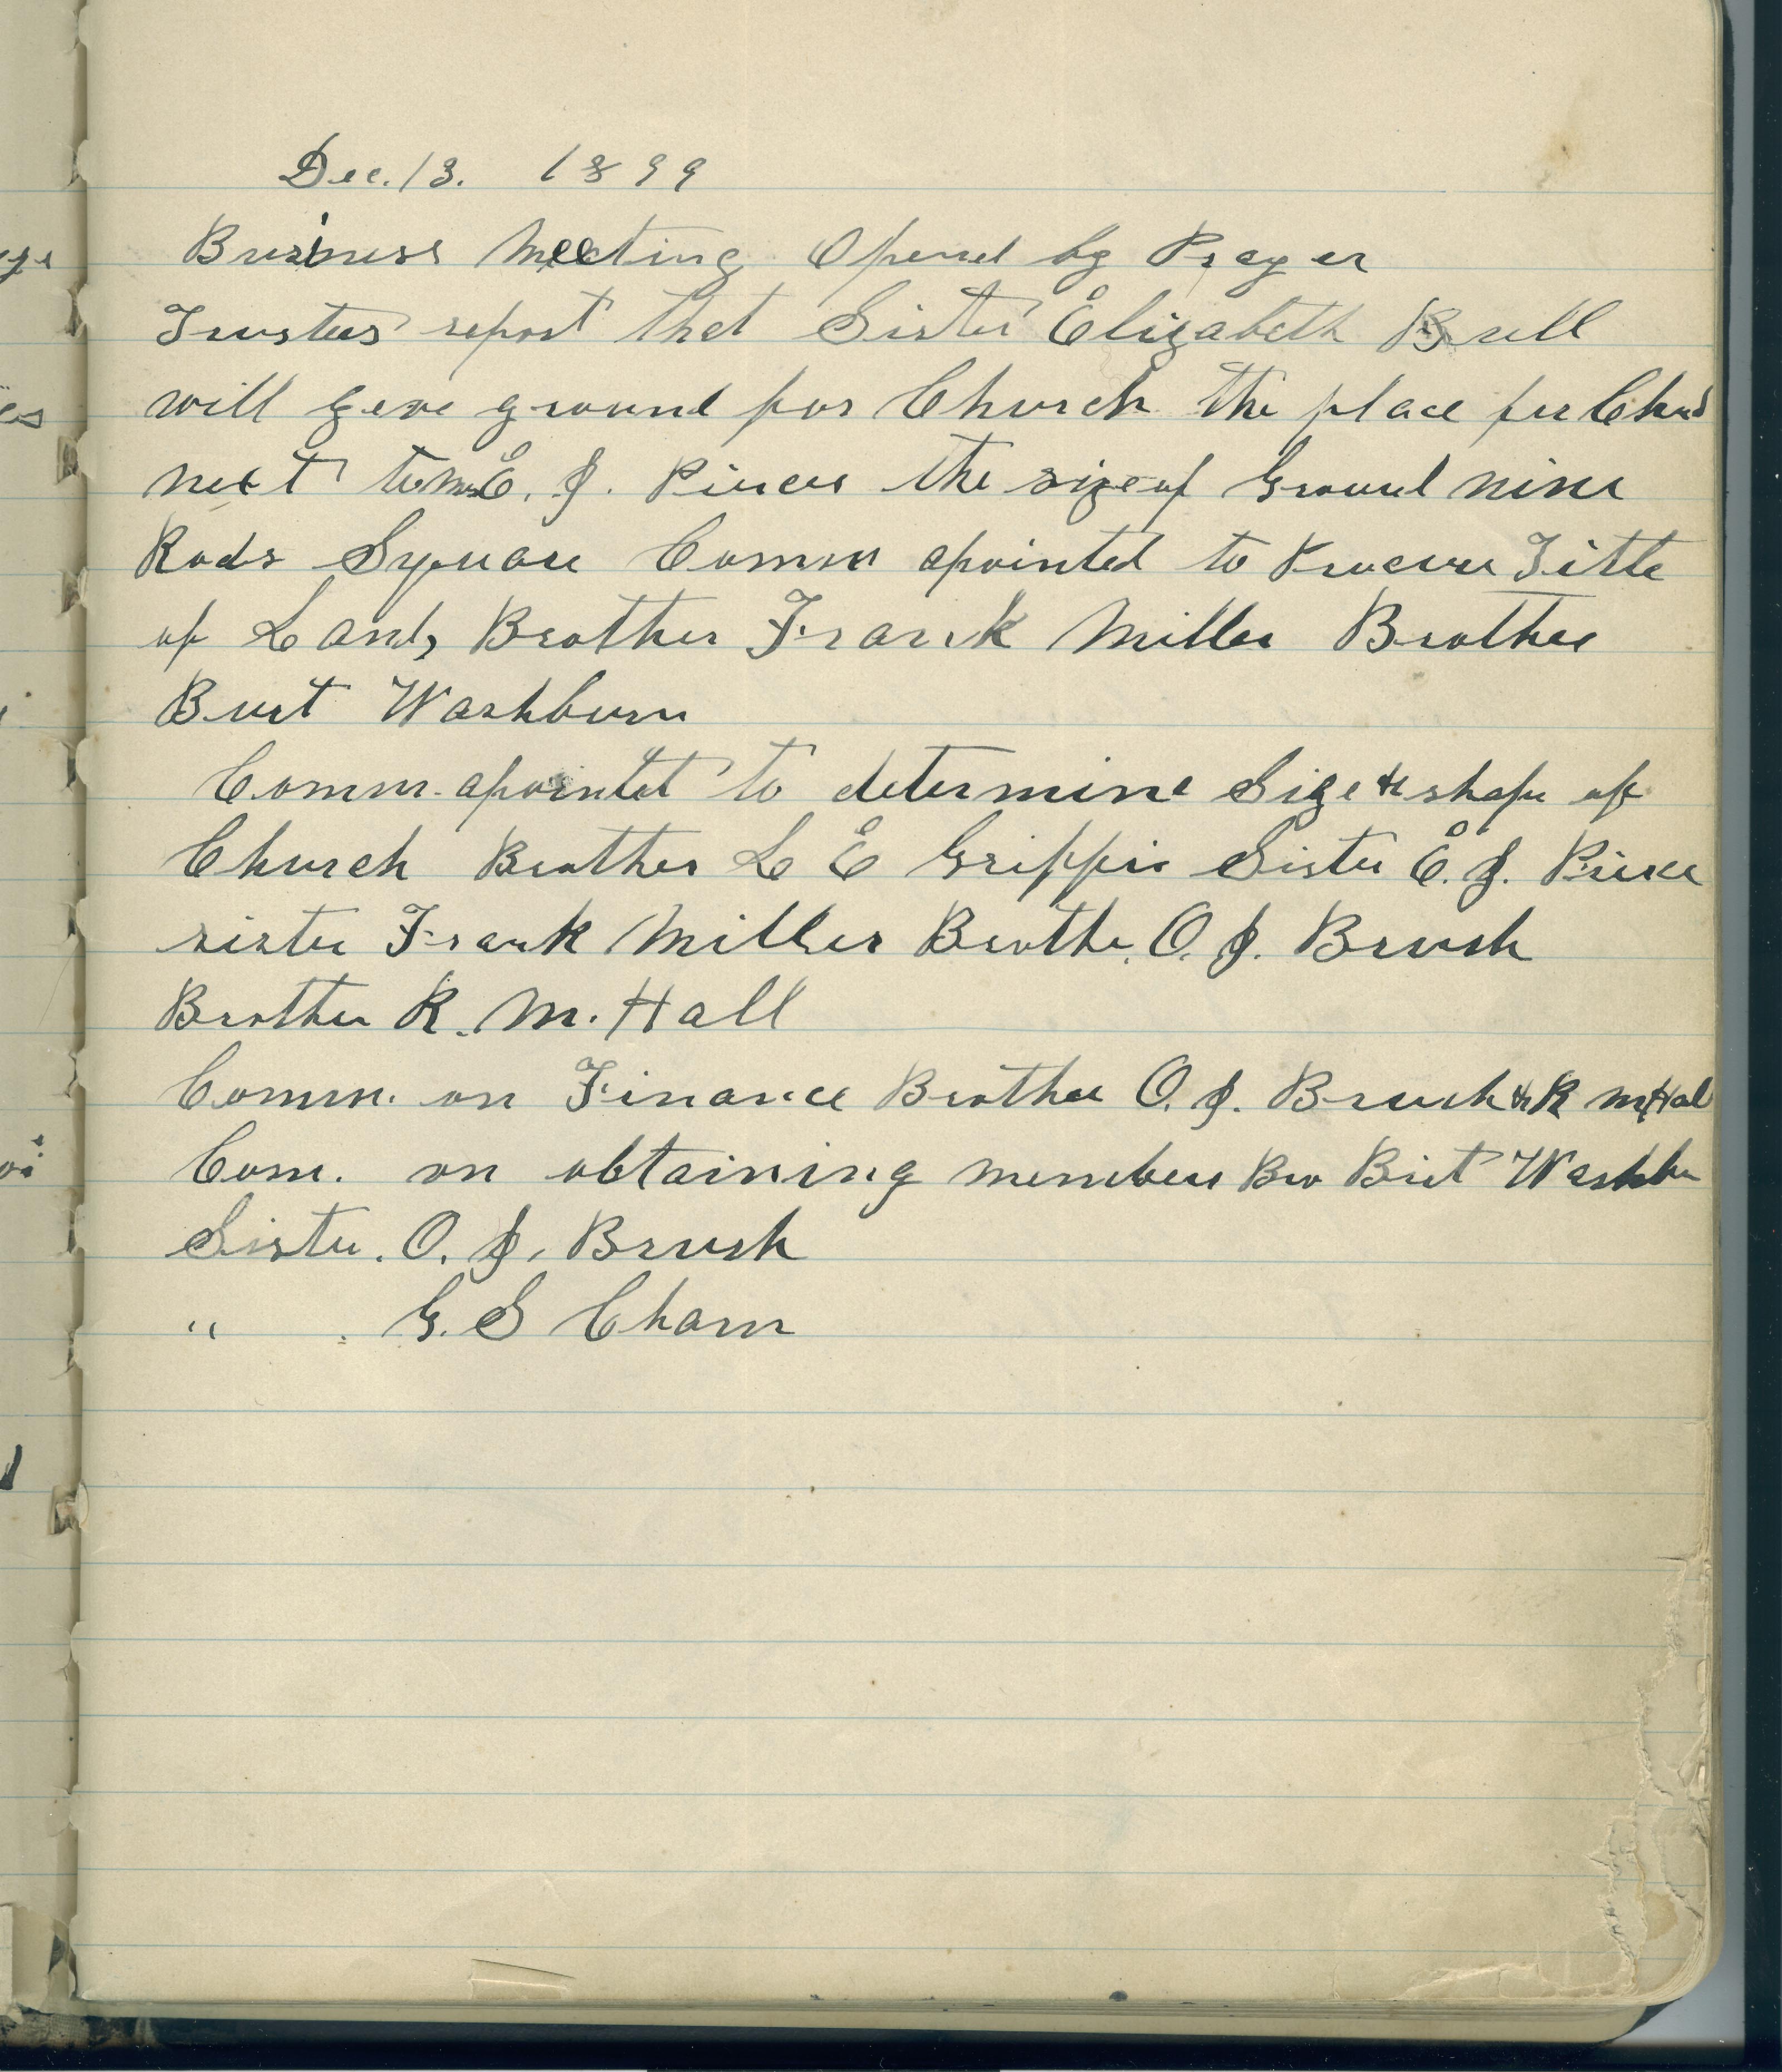 Dec. 13. 1899
Business Meeting Opened by Prayer
Trustees report that Sister Elizabeth Brell
will geve ground for Church the place for Church
next to Mrs E. J. Pierces the size of Ground nine
Rods Square Comm apointed to Procure Title
of Land, Brother Frank Miller Brother
Burt Washburn
Comm. apointed to determine Size & shape of
Church Brother L E Grippin Sister E. J. Pierce
sister Frank Miller Brother O. J. Brush
Brother R. M. Hall
Comm. on Finance Brother O. J. Brush & R M Hall
Com. on obtaining members Bro Birt Washbu
Sister. O. J. Brush
" G. S Cham